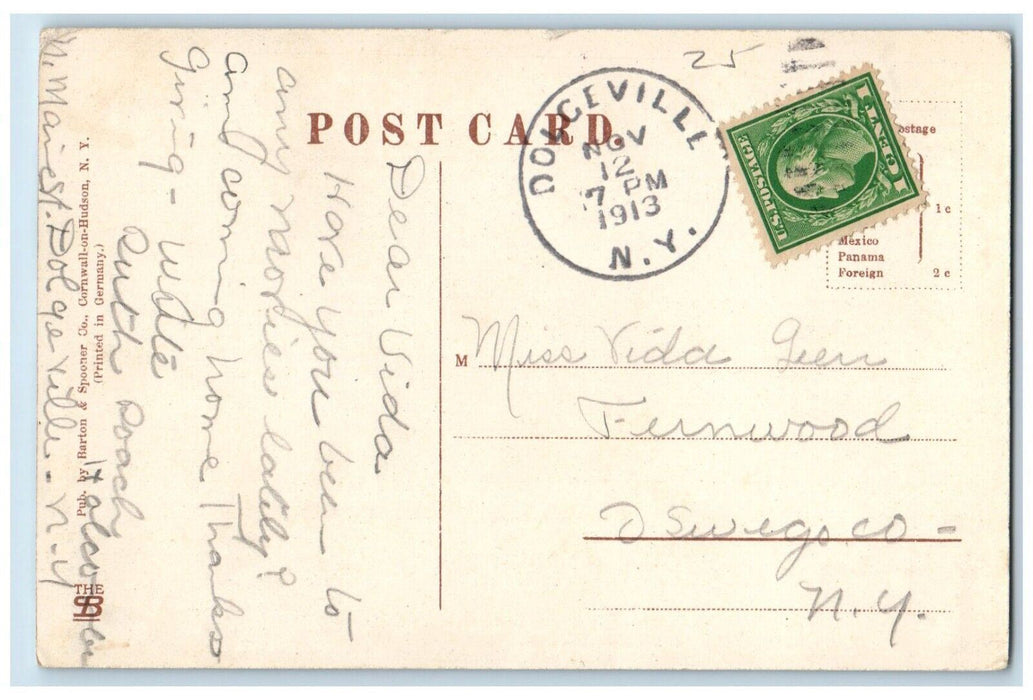 25
POST CARD.
DOLGEVILLE
NOV
12
7 PM
1913
N.Y.
U.S. POSTAGE
1 CENT 1
ostage
1 c
Mexico
Panama
Foreign 2 c
M Miss Vida Geer
Fernwood
Oswego. co -
N. Y.
Dear Vida
Have you been to
any movies lately?
am coming home Thanks
giving - write
Ruth Roach
N. Main St. Dolgeville - N-Y
Pub. by Barton & Spooner Co., Cornwall-on-Hudson, N. Y.
(Printed in Germany.)
THE
SB